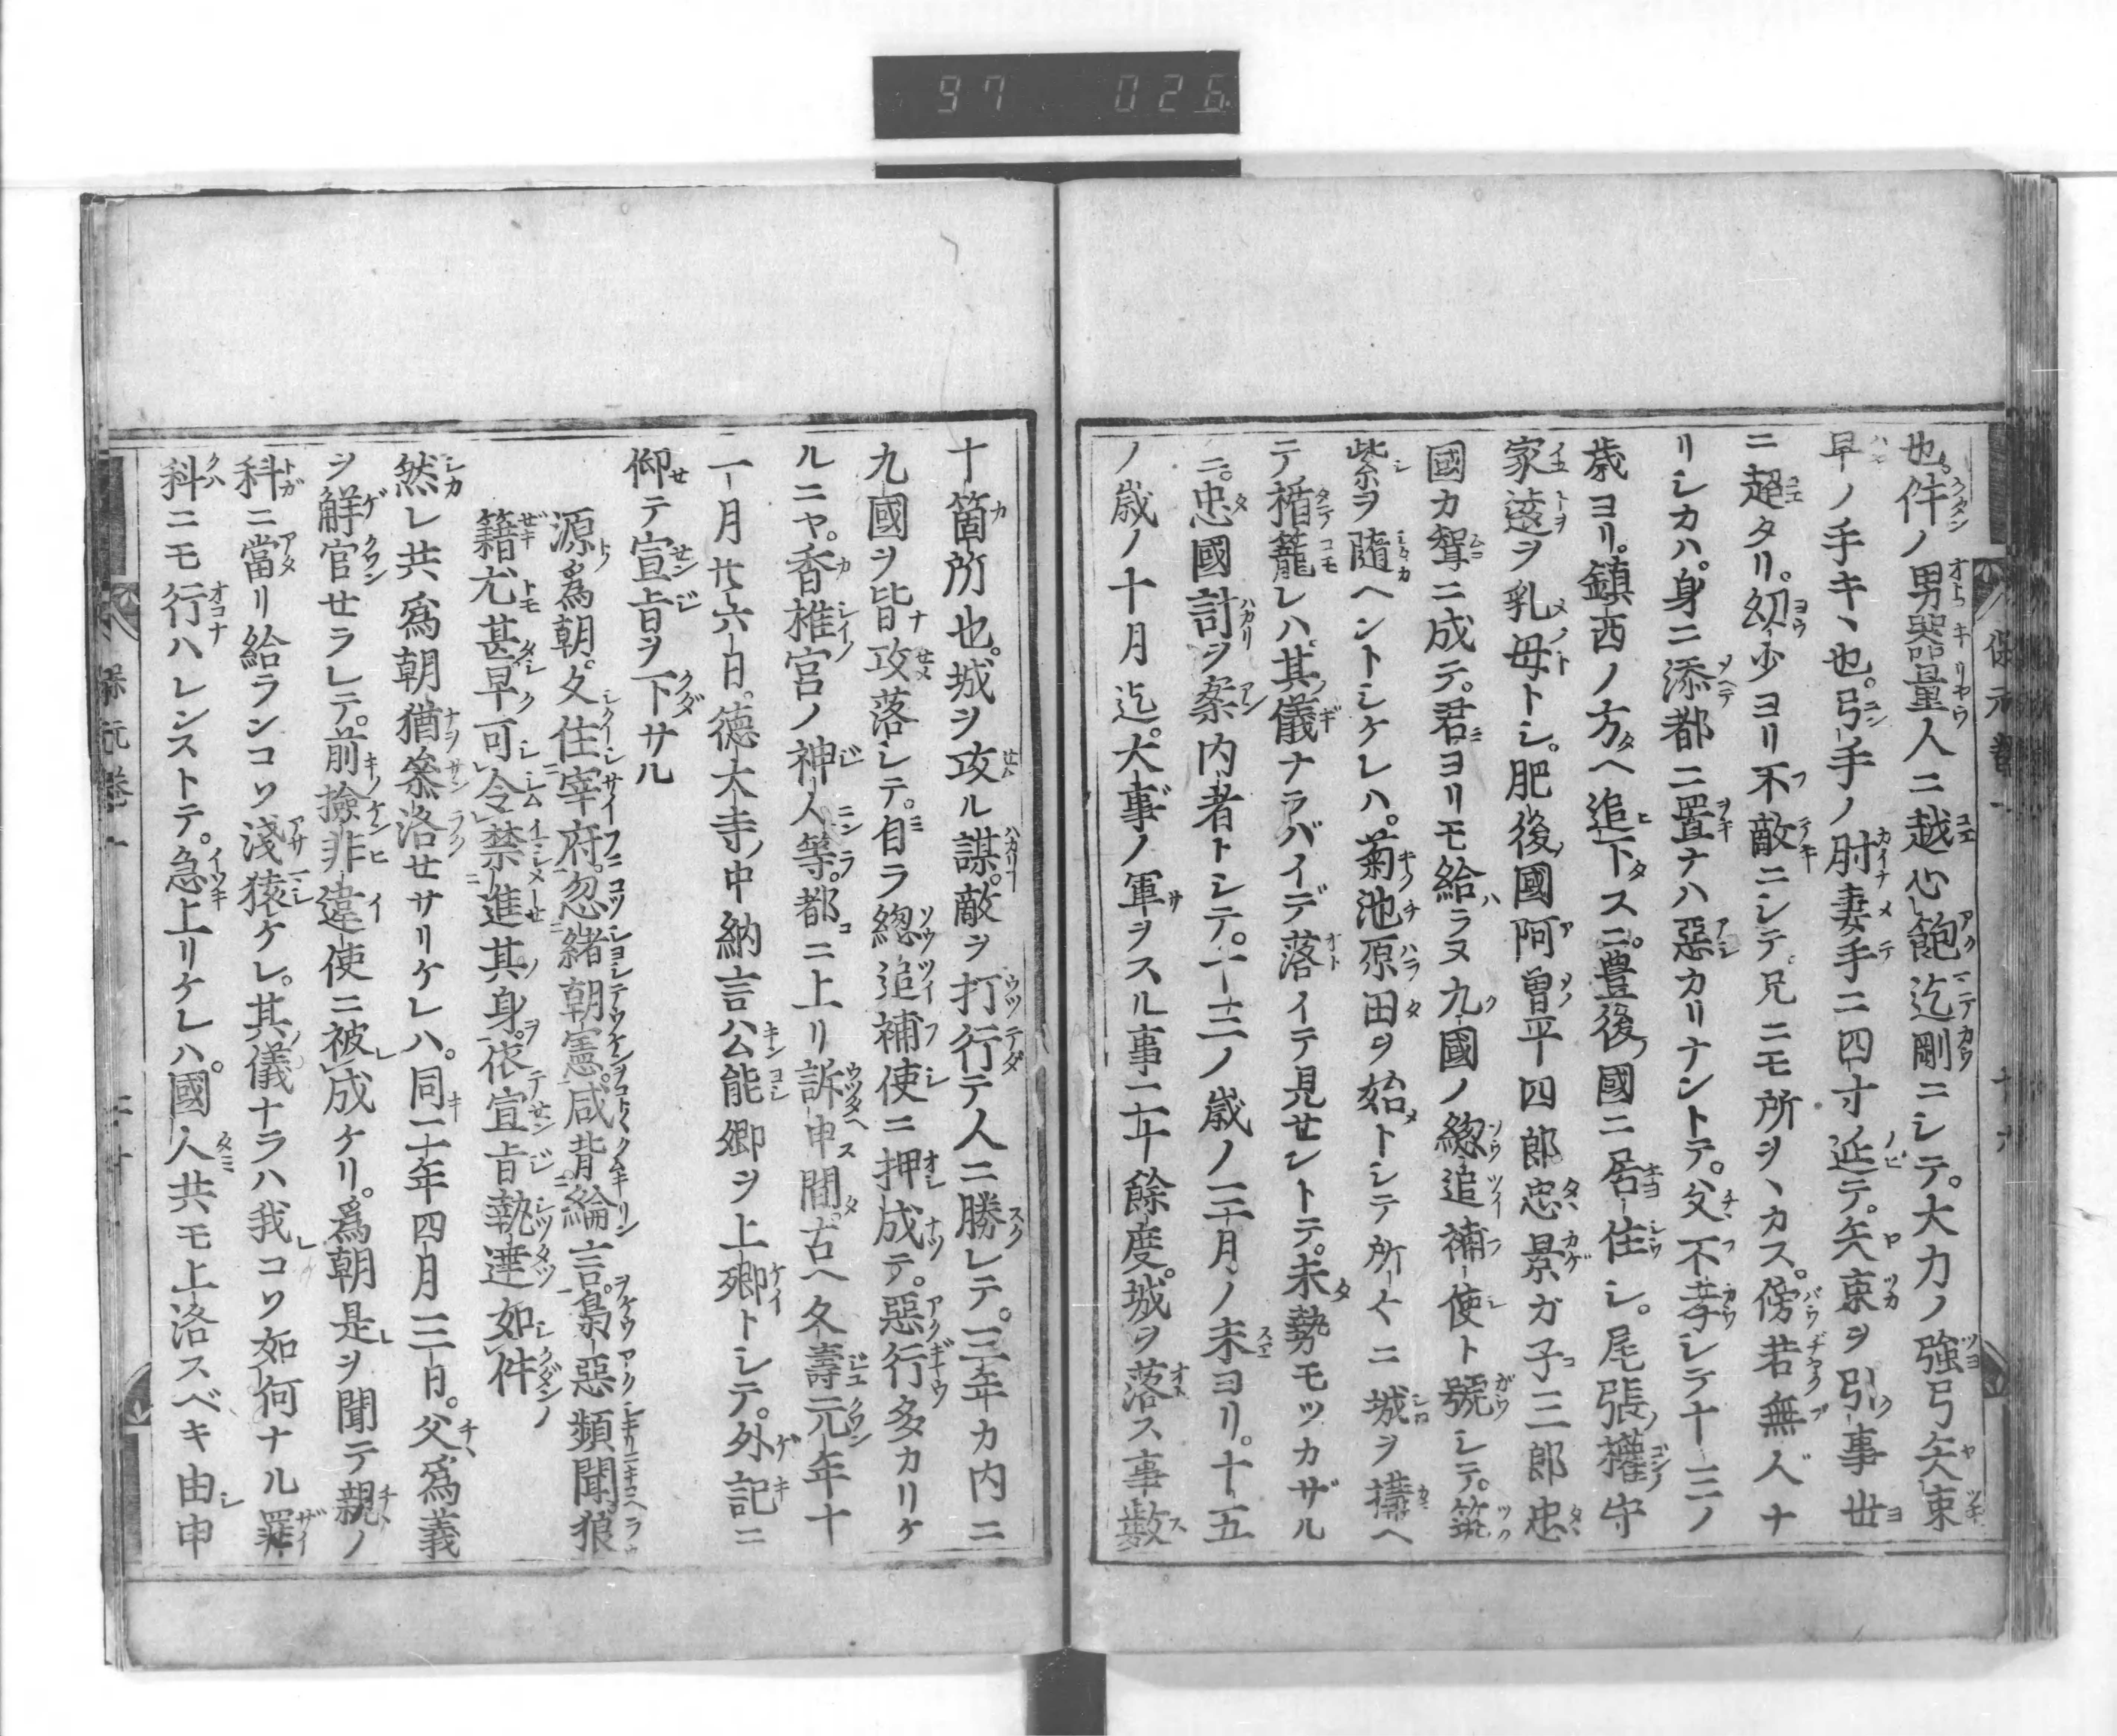 97 026
也。件ノ男器量人ニ越心飽迄剛ニシテ。大力ノ強弓矢束
早ノ手キヽ也。弓手ノ肘妻手ニ四寸延テ。矢束ヲ引事世
ニ超タリ。幼少ヨリ不敵ニシテ兄ニモ所ヲヽカス。傍若無人ナ
リシカハ。身ニ添都ニ置ナハ惡カリナントテ。父不孝シテ十三ノ
歳ヨリ。鎮西ノ方ヘ追下スニ。豊後國ニ居住シ。尾張權守
家遠ヲ乳母トシ。肥後國阿曽平四郎忠景ガ子三郎忠
國カ聟ニ成テ。君ヨリモ給ラヌ九國ノ緫追補使ト號シテ。筑
紫ヲ隨ヘントシケレハ。菊池原田ヲ始トシテ所々ニ城ヲ構ヘ
テ楯籠レハ。其儀ナラバイデ落イテ見セントテ。未勢モツカザル
ニ。忠國計ヲ案内者トシテ。十三ノ歳ノ三月ノ末ヨリ。十五
ノ歳ノ十月迄。大事ノ軍ヲスル事二十餘度。城ヲ落ス事数
十箇所也。城ヲ攻ル謀。敵ヲ打行テ人ニ勝レテ。三年カ内ニ
九國ヲ皆攻落シテ。自ラ緫追補使ニ押成テ。惡行多カリケ
ルニヤ。香椎宮ノ神人等。都ニ上リ訴申間。古ヘ久壽元年十
一月廿六日。徳大寺ノ中納言公能郷ヲ上卿トシテ。外記ニ
仰テ宣旨ヲ下サル
源爲朝。久住宰府。忽緒朝憲。咸背綸言。梟惡頻聞。狼
籍尤甚早可令禁進其身。依宣旨執達如件
然レ共爲朝猶參洛セサリケレハ。同二年四月三日。父爲義
ヲ解官セラレテ。前撿非違使ニ被成ケリ。爲朝是ヲ聞テ親ノ
科ニ當リ給ランコソ淺猿ケレ。其儀ナラハ我コソ如何ナル罪
科ニモ行ハレンストテ。急上リケレハ。國人共モ上洛スベキ由申